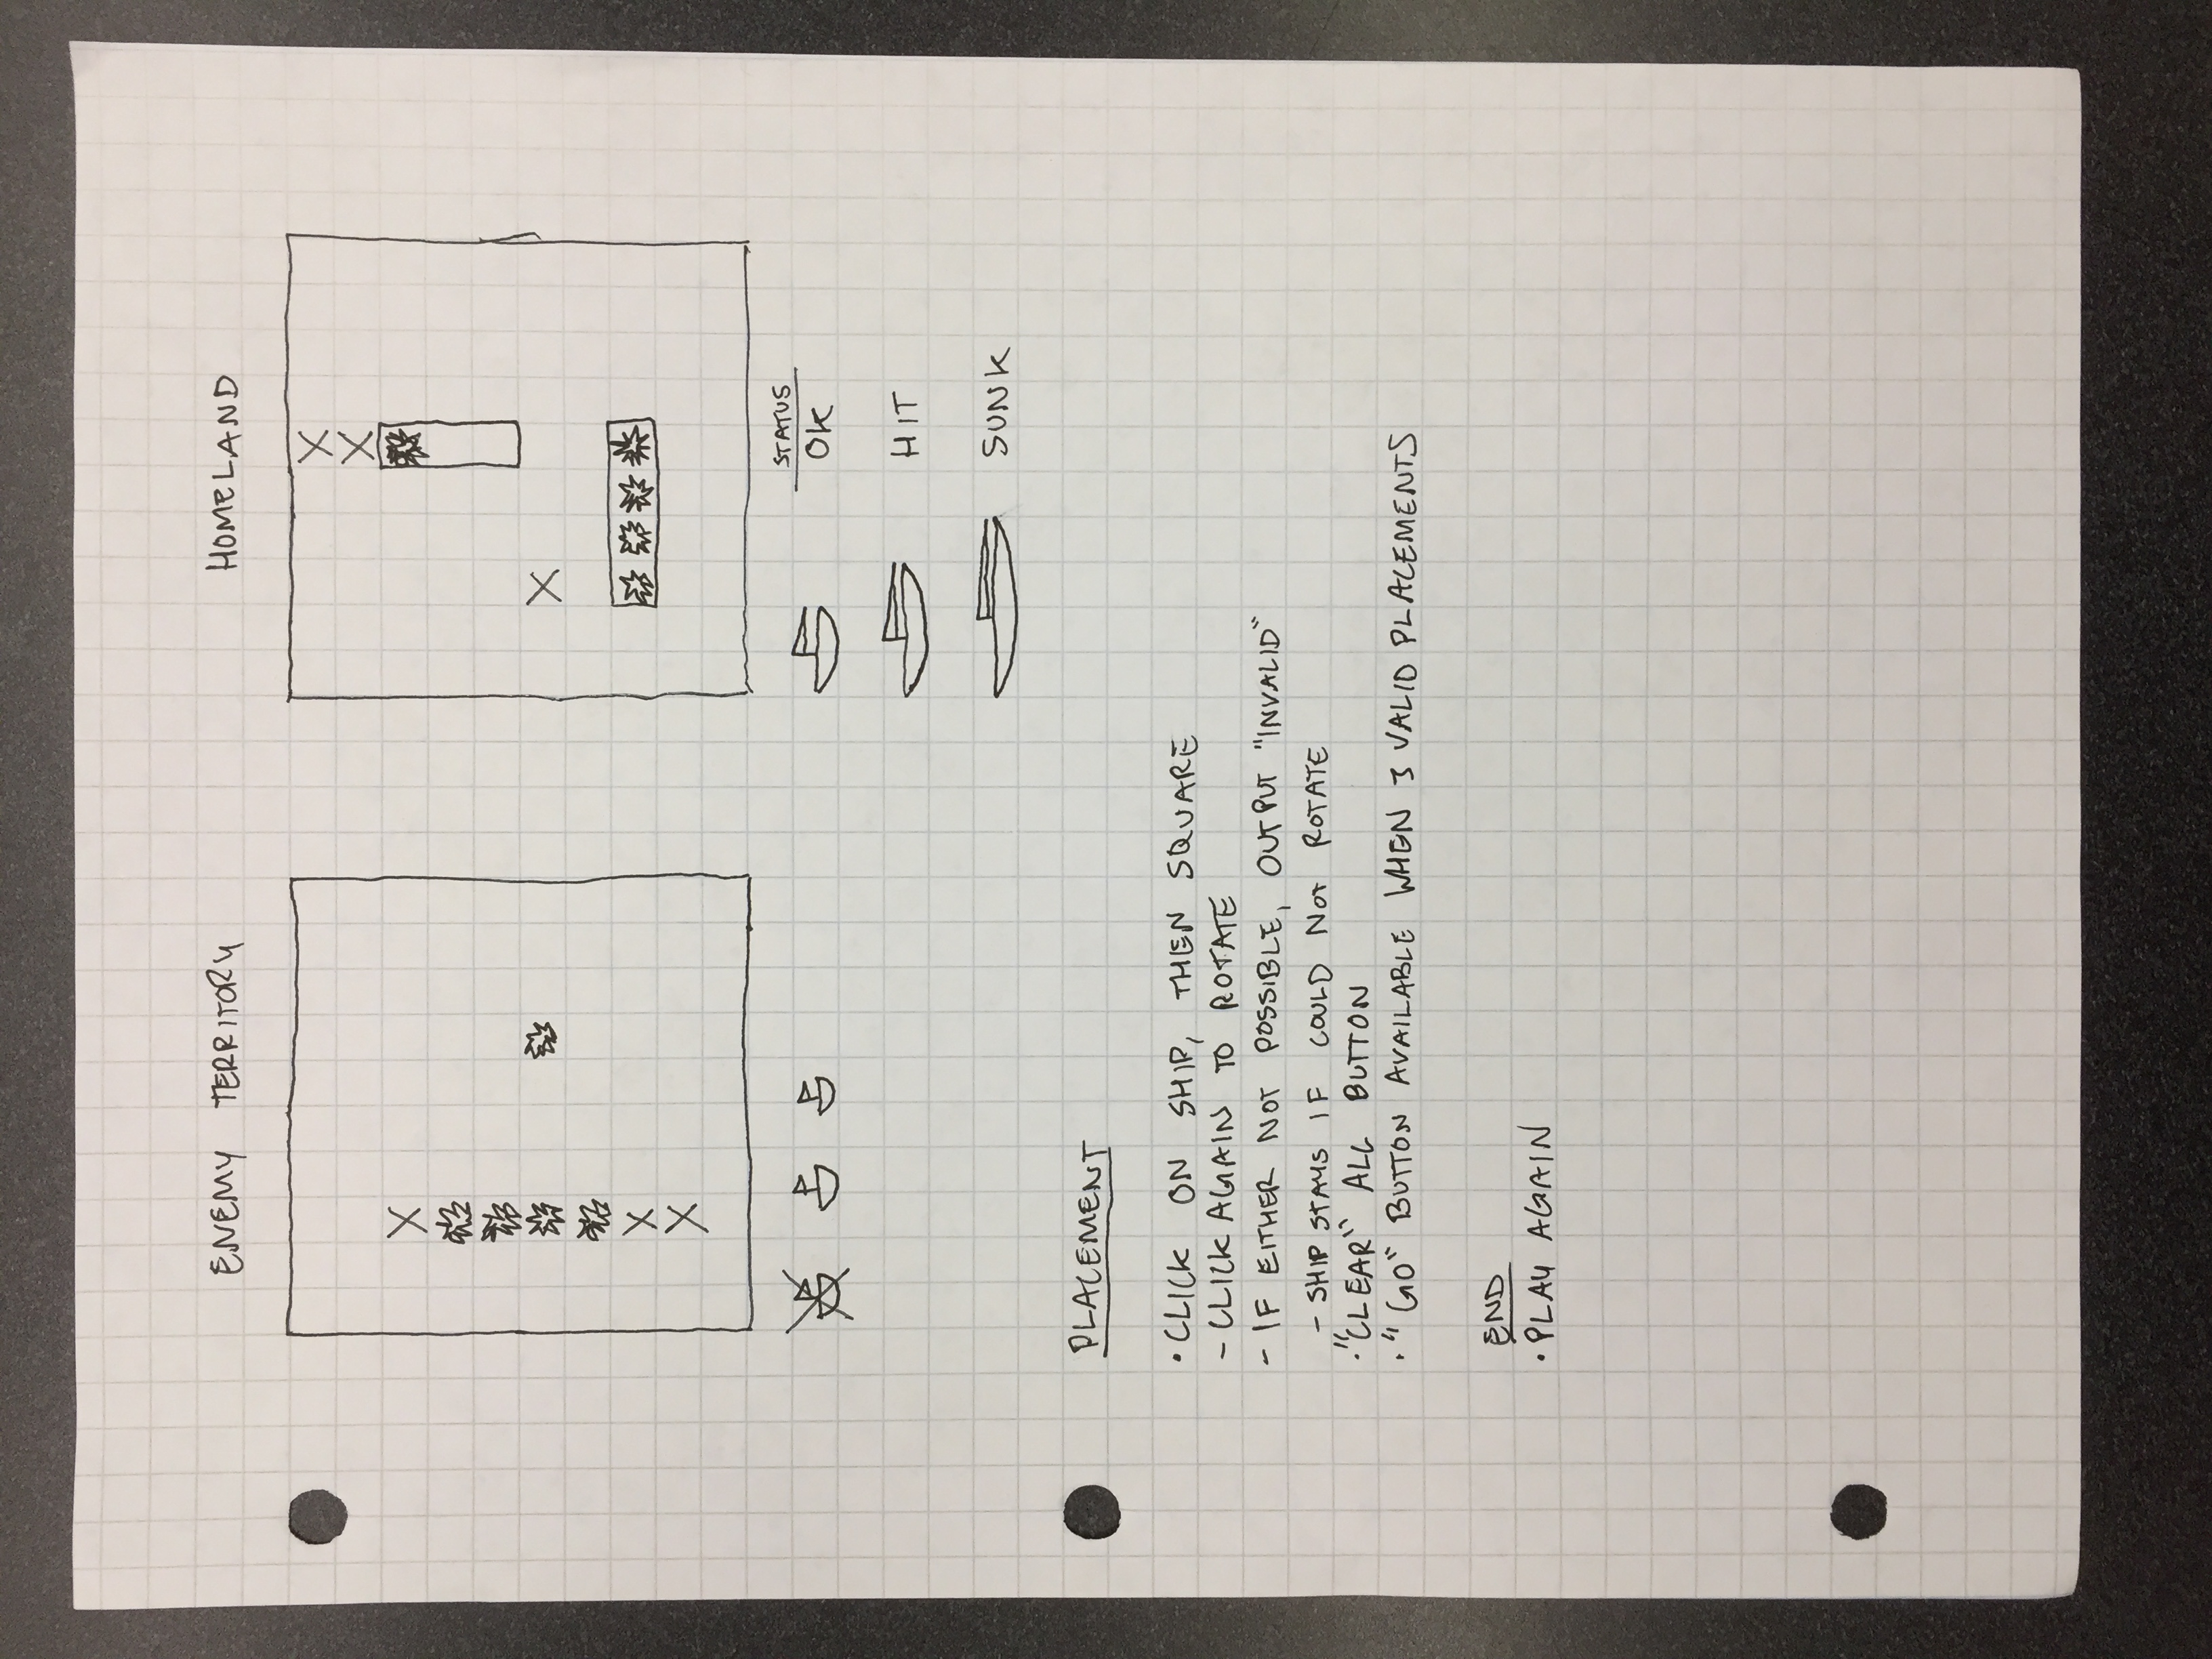 ENEMY TERRITORY
HOMELAND
STATUS
OK
HIT
SUNK
PLACEMENT
• CLICK ON SHIP, THEN SQUARE
- CLICK AGAIN TO ROTATE
- IF EITHER NOT POSSIBLE, OUTPUT "INVALID"
- SHIP STAYS IF COULD NOT ROTATE
• "CLEAR" ALL BUTTON
• "GO" BUTTON AVAILABLE WHEN 3 VALID PLACEMENTS
END
• PLAY AGAIN